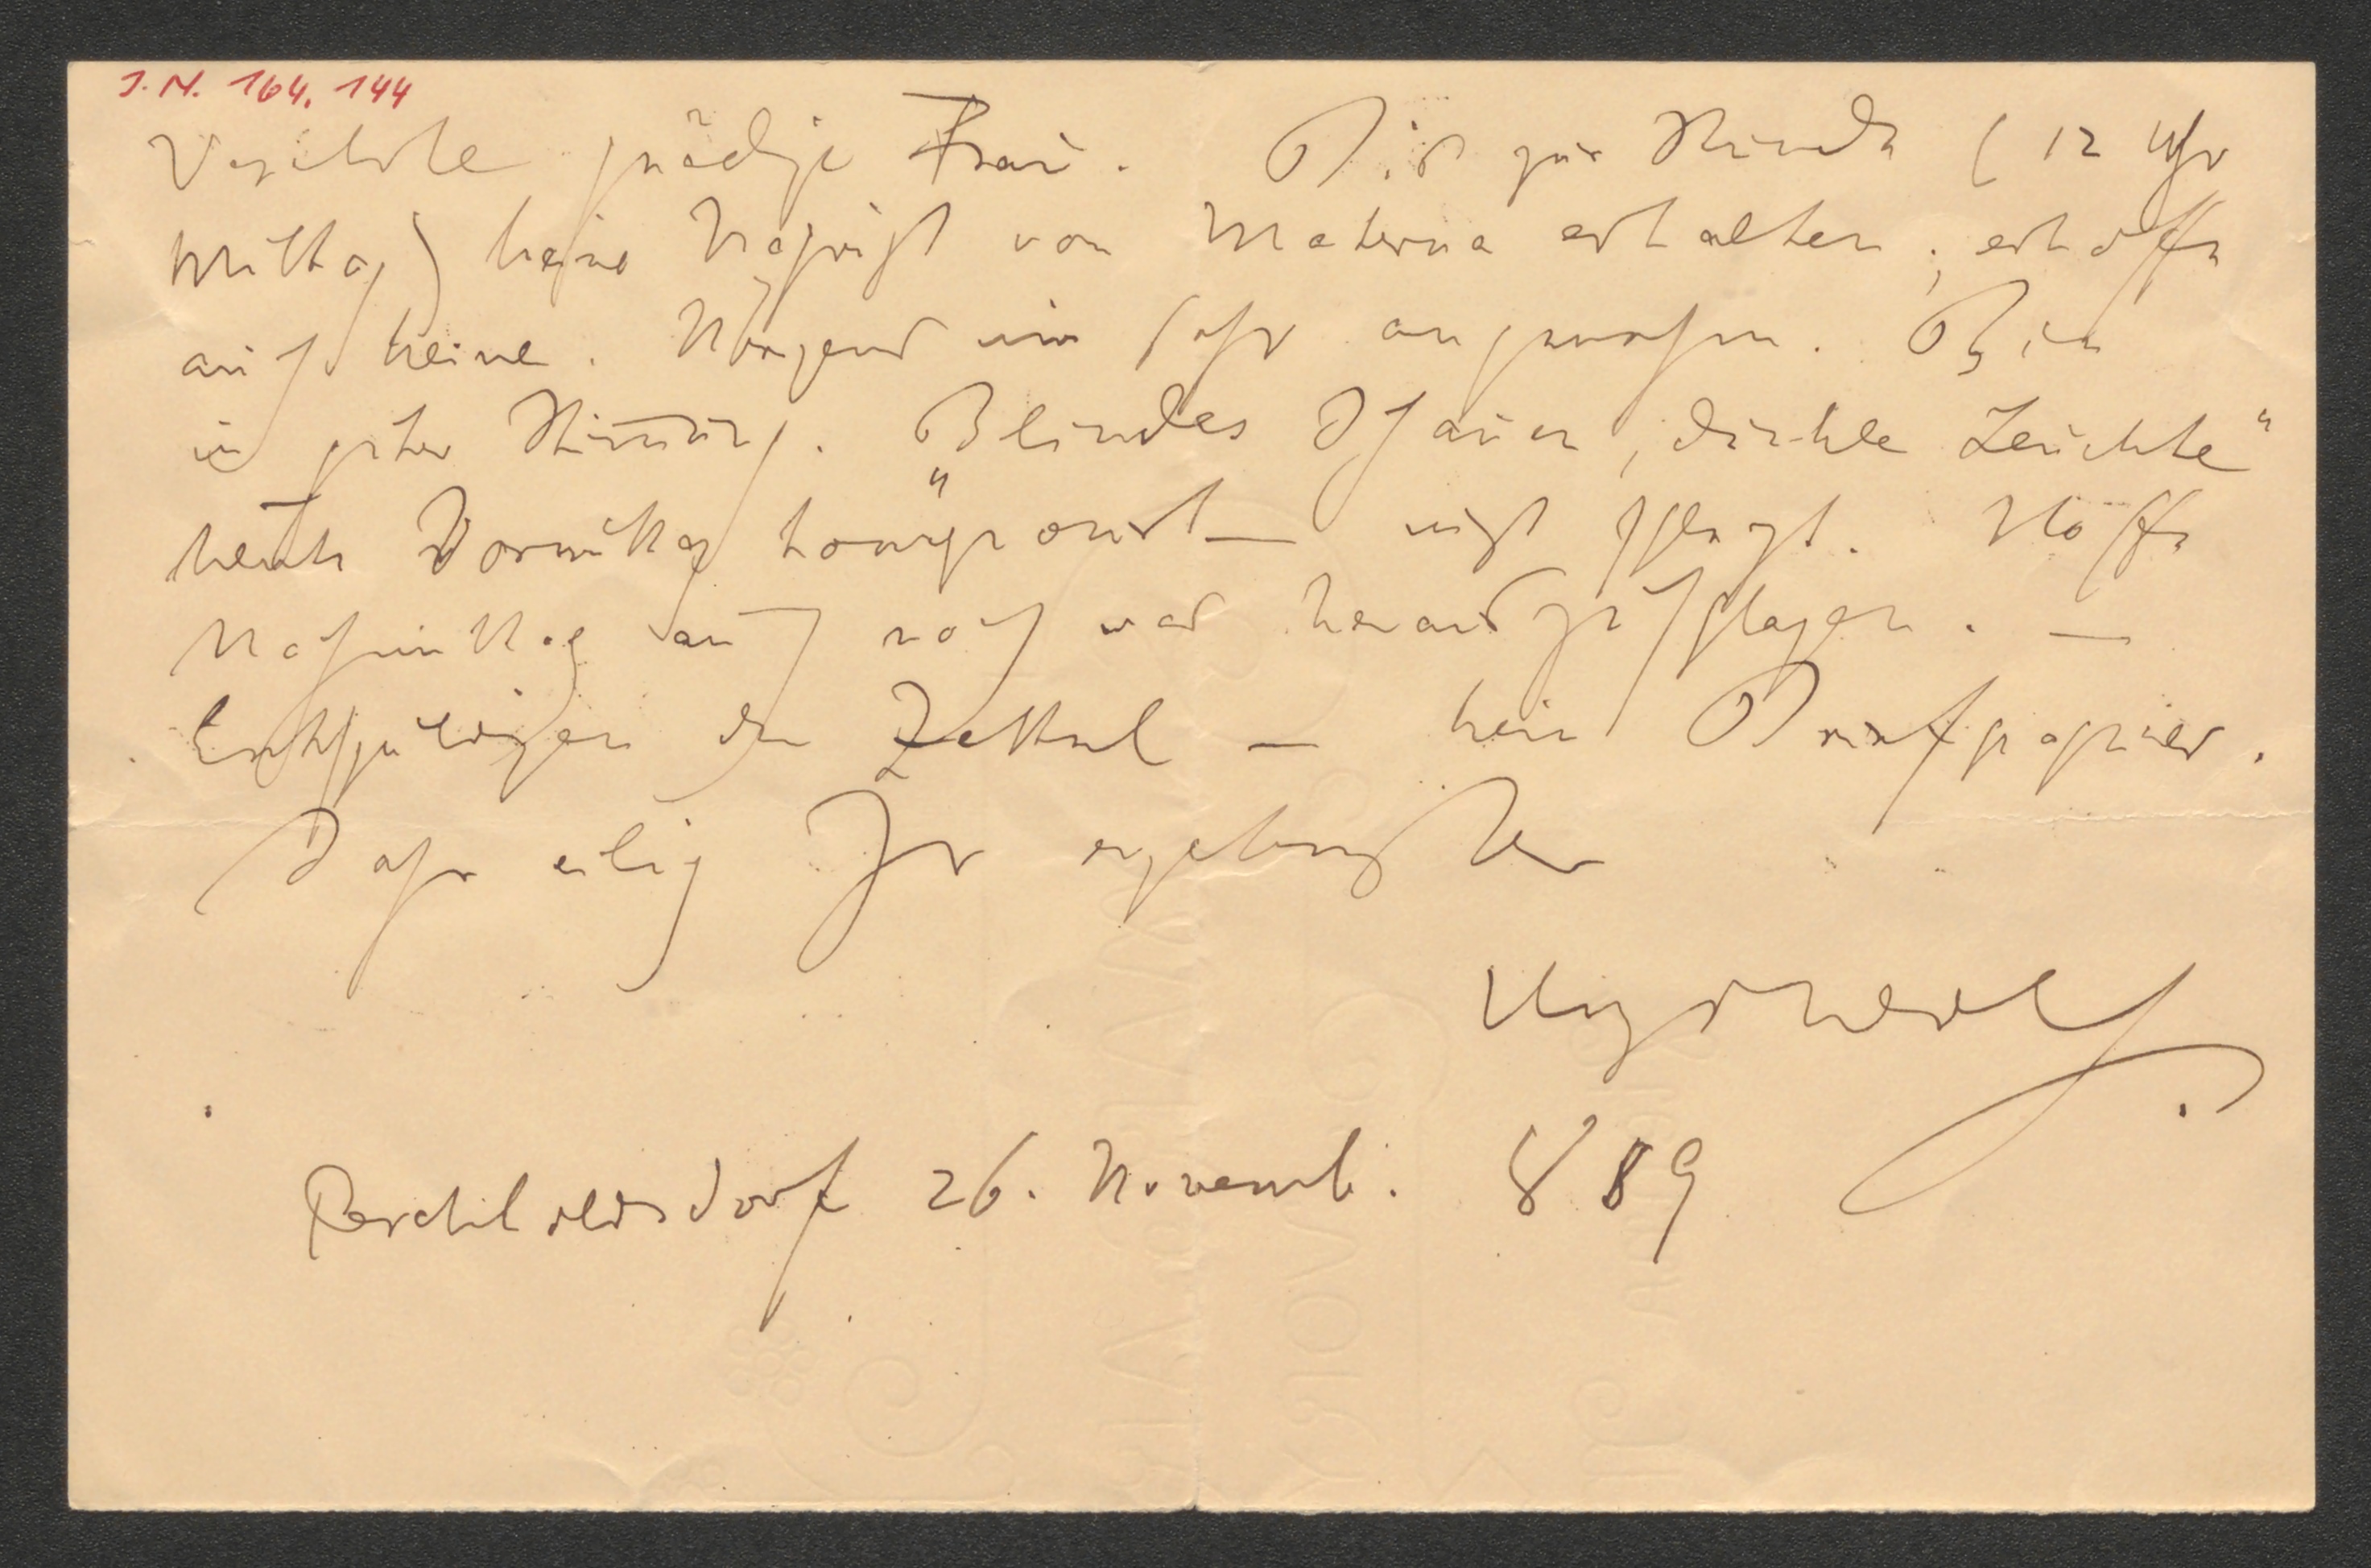 I.N. 164.144
Verehrte gnädige Frau. Bis zur Stunde (12 Uhr
Mittag) keine Nachricht von Materna erhalten; erhoffe
auch keine. Nirgends um angewachsen. Bin
in guter Stimmung. „Blindes Schauen, dunkle Leuchte"
heute Vormittag komponirt — nicht schlecht. Hoffe
Nachmittag auch noch was herauszuschlagen. —
Entschuldigen den Zettel — kein Briefpapier.
Sehr eilig Ihr ergebenster
Hugo Wolf
Perchtoldsdorf 26. Novemb. 889